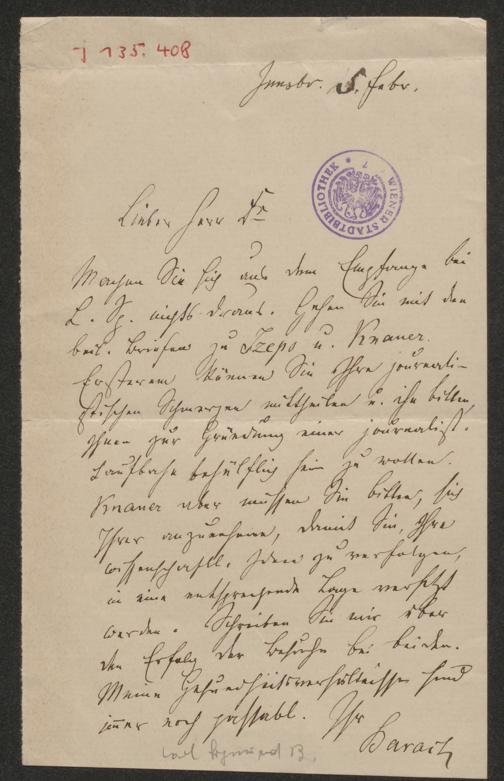 J 135.408
Innsbr. 5. Febr.
WIENER STADTBIBLIOTHEK
Lieber Herr Dr
Machen Sie sich aus dem Empfange bei
L. Sp. nichts draus. Gehen Sie mit den
beil. Briefen zu Szeps u. Knauer.
Ersterem können Sie Ihre journali-
stischen Schmerzen mittheilen u. ihn bitten,
Ihnen zur Gründung einer journalist.
Laufbahn behülflich sein zu wollen.
Knauer aber müssen Sie bitten, sich
Ihrer anzunehmen, damit Sie, Ihre
wissenschaftl. Ideen zu verfolgen,
in eine entsprechende Lage versetzt
werden. Schreiben Sie mir über
den Erfolg der Besuche bei beiden.
Meine Gesundheitsverhältnisse sind
immer noch passabl. Ihr
Barach
Carl Sigmund B.